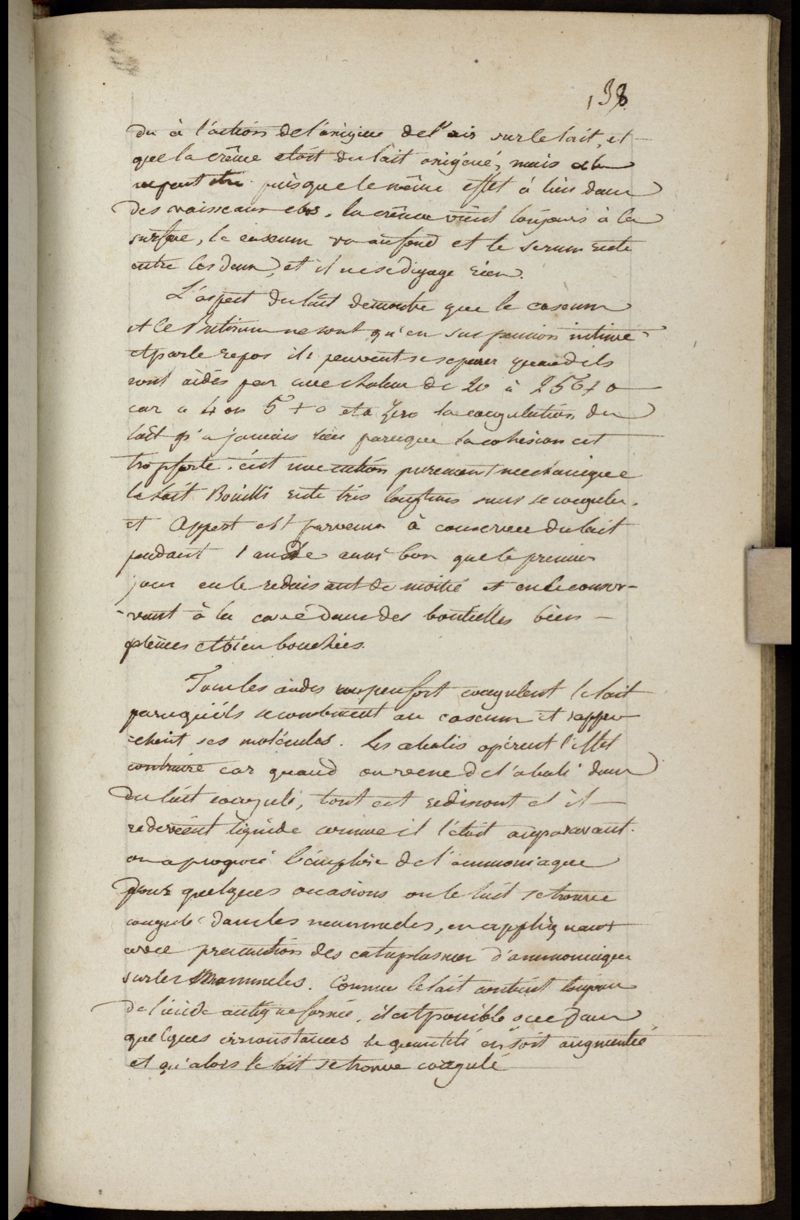 138
du à l'action de l'oxigene de l'air sur le lait, et
que la crême etoit du lait oxigéné, mais cela
ne peut etre puisque le même effet à lieu dans
des vaisseaux clos. la crême vient toujours à la
surface, le caseum va au fond et le serum reste
entre les deux, et il ne se dégage rien.
L'aspect du lait demontre que le caseum
et le butirum ne sont qu'en suspension intime
et par le repos ils peuvent se separer quand ils
sont aidés par une chaleur de 20 à 25 + 0
car a 4 ou 5 + 0 et a zero la coagulation du
lait n'a jamais lieu parceque la cohésion est
trop forte. c'est une action purement mechanique
le lait Bouilli reste très longtems sans se coaguler.
et Appert est parvenu à conserver du lait
pendant 1 année aussi bon que le premier
jour en le reduisant de moitié et en le conser-
-vant à la cave dans des bouteilles bien
pleines et bien bouchées.
Tous les acides un peu fort coagulent le lait
parcequ'ils se combinent au caseum et rappro
-chent ses molécules. Les alcalis opérent l'effet
contraire car quand on verse de l'alcali dans
du lait coagulé, tout est redissout et il
redevient liquide comme il l'était auparavant.
on a proposé l'emploie de l'ammoniaque
pour quelques occasions ou le lait se trouve
coagulé dans les mammeles, en appliquant
avec precaution des cataplasmes d'ammoniaque
sur les Mammeles. Comme le lait contient toujours
de l'acide acetique formé, il est possible que dans
quelques circonstances la quantité en soit augmentée
et qu'alors le lait se trouve coagulé